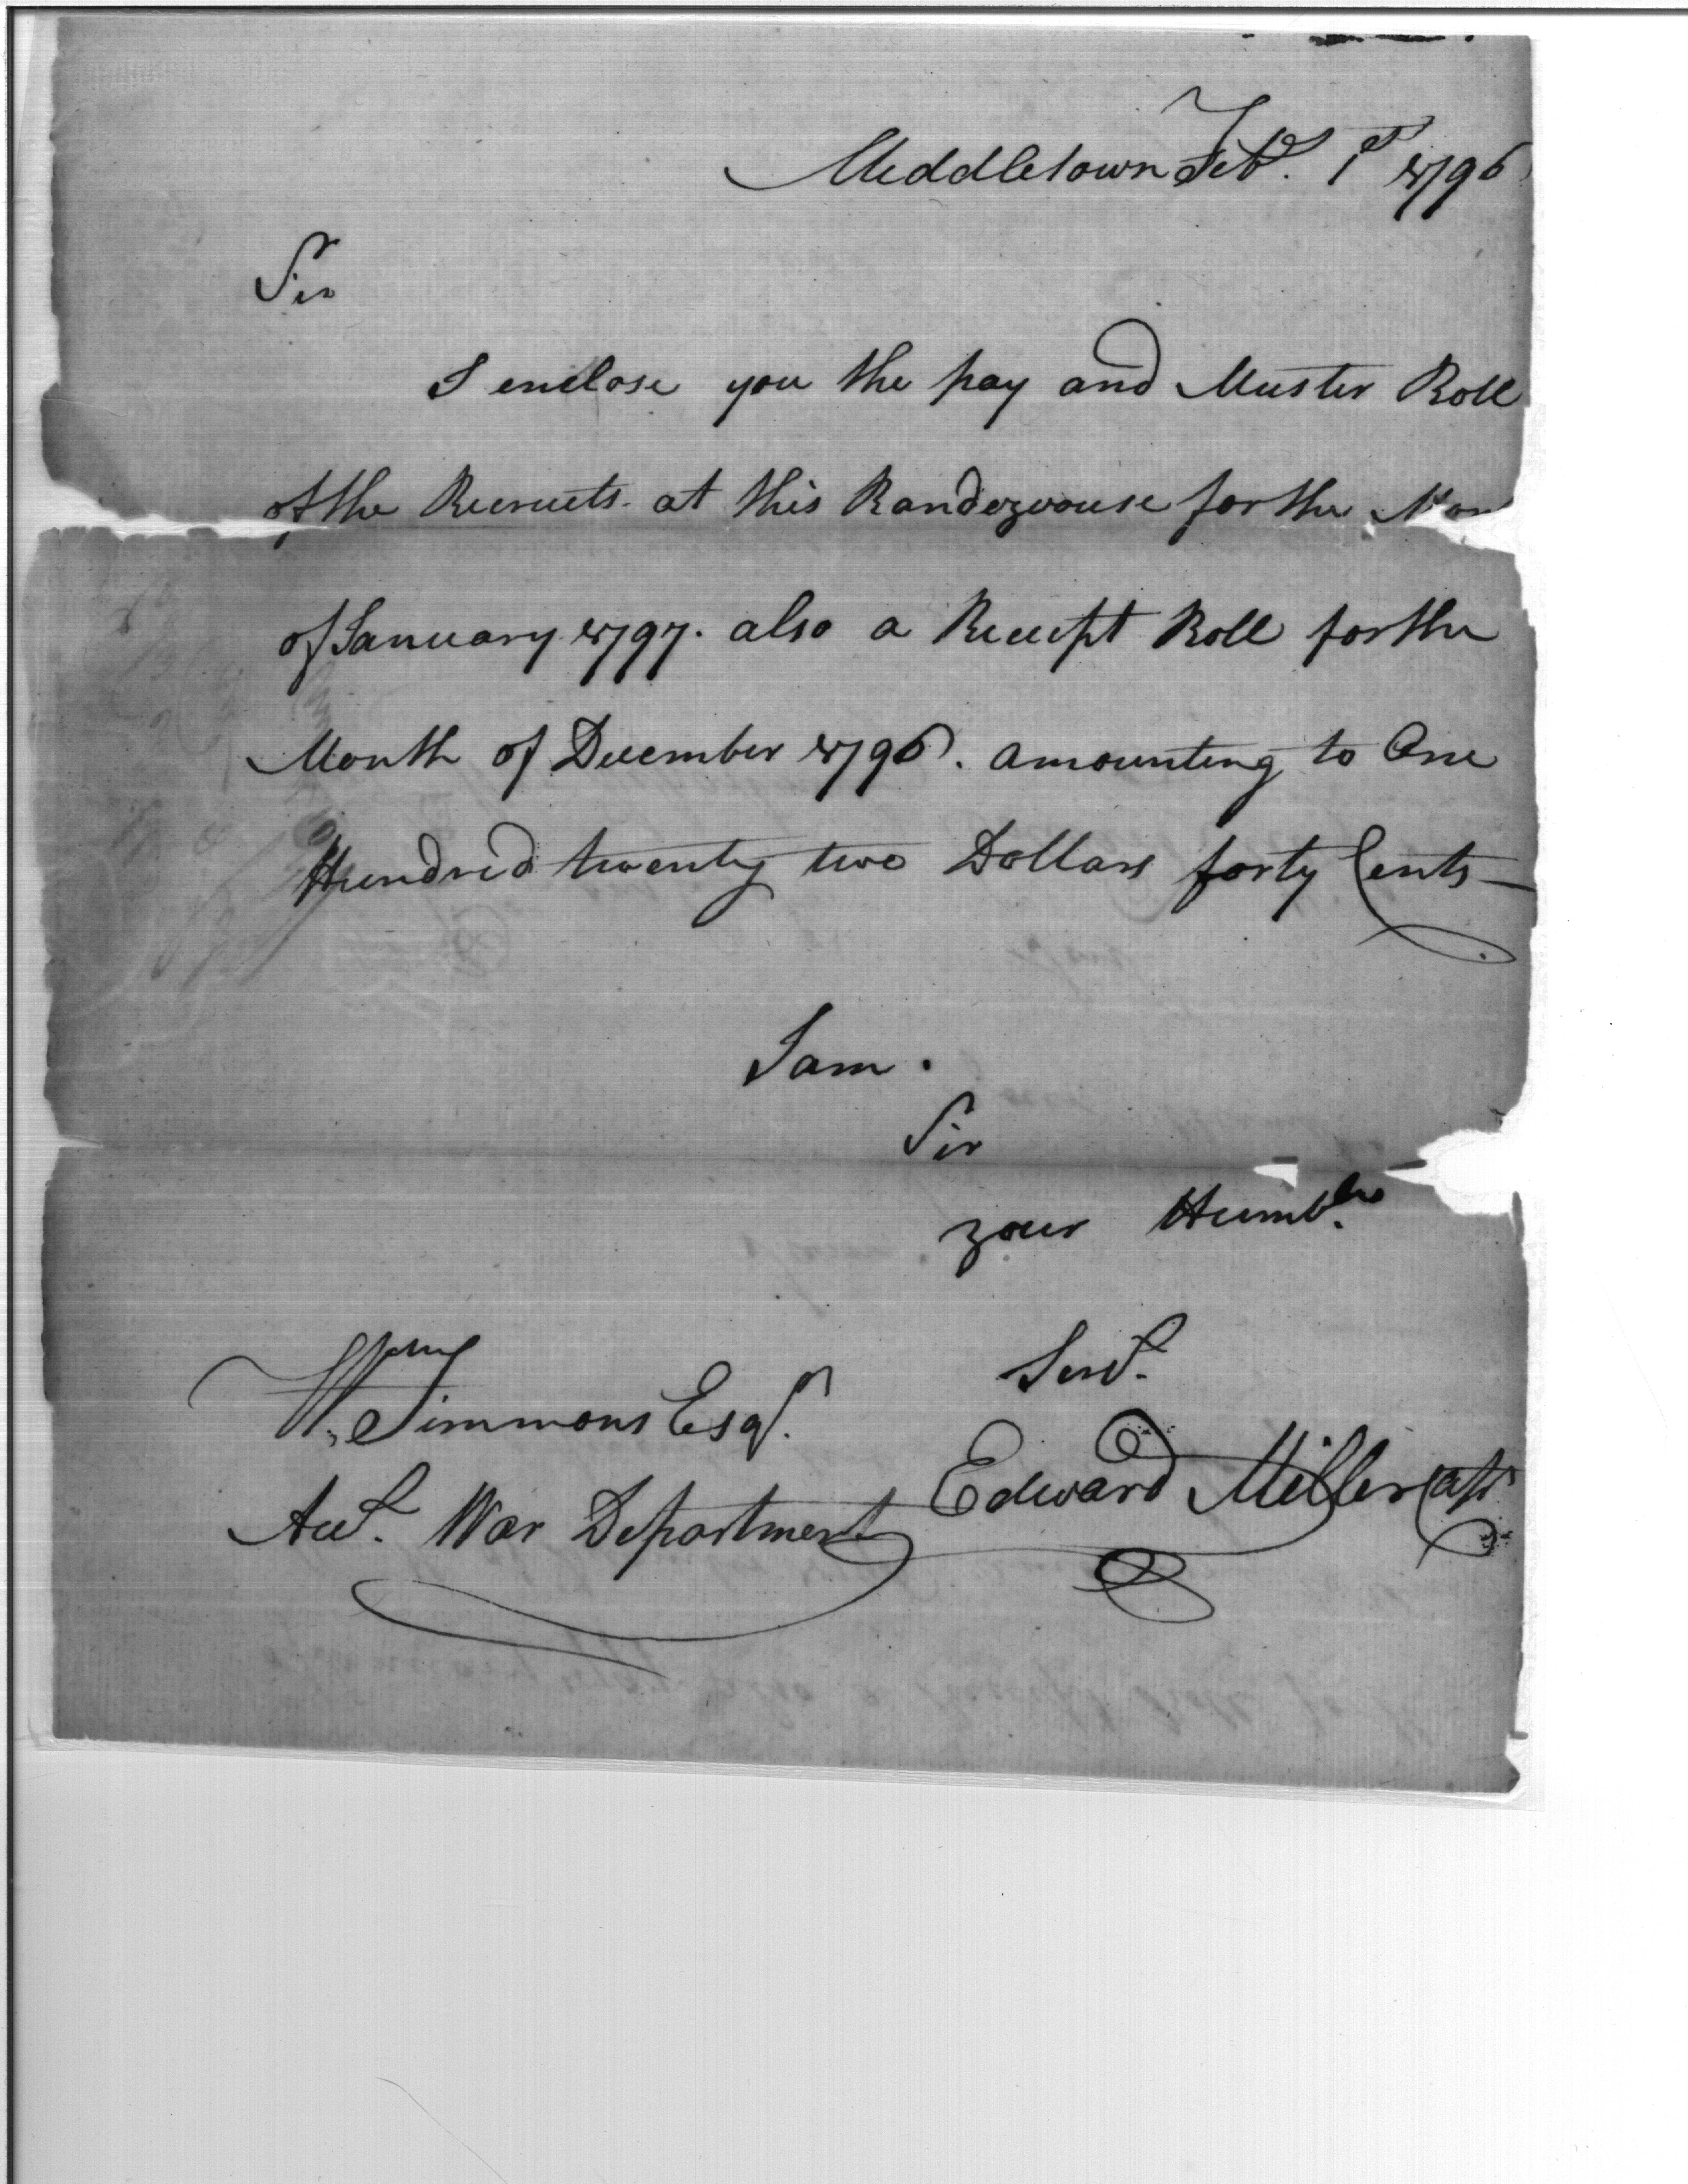 Middletown Feb.y 1st 1796
Sir
I enclose you the pay and Muster Roll
of the Recruits at this Randezvouse for the Mon
of January 1797. also a Receipt Roll for the
Month of December 1796. amounting to One
Hundred twenty two Dollars forty Cents—
I am.
Sir
your Humb.le
Serv.t
Wm. Simmons Esqr.
Acct. War Department
Edward Miller Capt